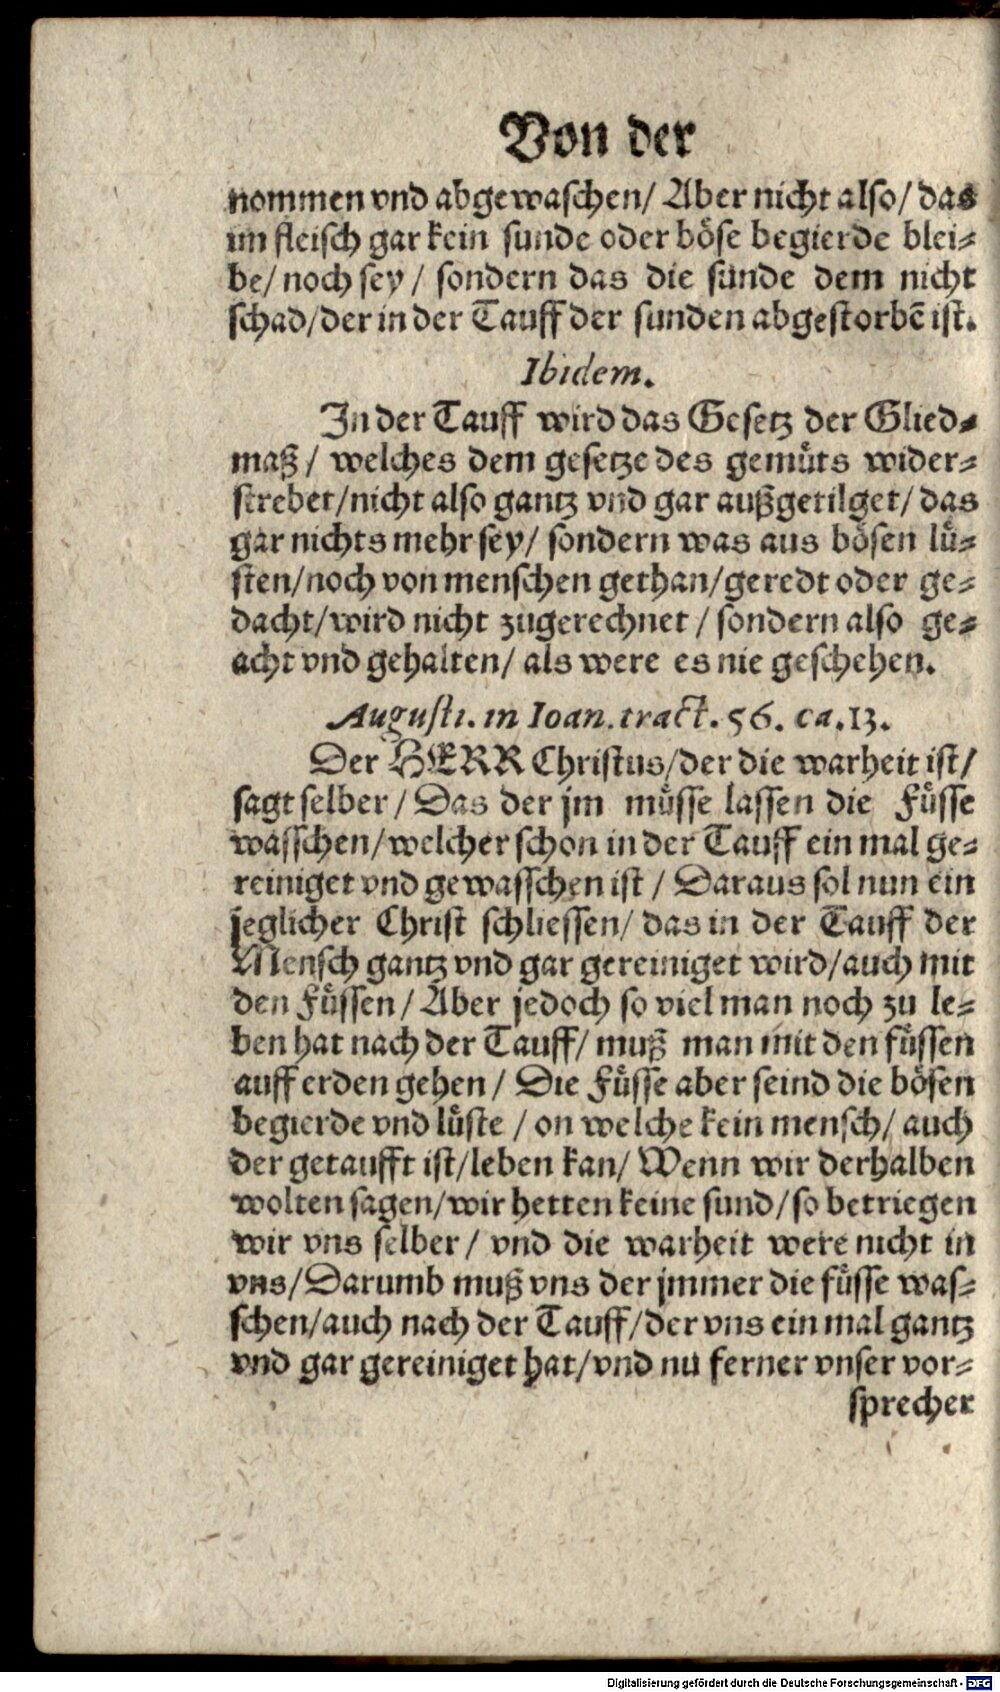 Von der
nommen vnd abgewaschen/ Aber nicht also/ das
im fleisch gar kein sunde oder böse begierde blei-
be/ noch sey / sondern das die sünde dem nicht
schad/der in der Tauff der sunden abgestorbē ist.
Ibidem.
In der Tauff wird das Gesetz der Glied-
maß / welches dem gesetze des gemüts wider-
strebet/nicht also gantz vnd gar außgetilget/ das
gar nichts mehr sey/ sondern was aus bösen lü-
sten/noch von menschen gethan/geredt oder ge-
dacht/wird nicht zugerechnet / sondern also ge-
acht vnd gehalten/ als were es nie geschehen.
Augusti. in Ioan. tract. 56. ca. 13.
Der HERR Christus/der die warheit ist/
sagt selber / Das der jm müsse lassen die Füsse
wasschen/welcher schon in der Tauff ein mal ge-
reiniget vnd gewasschen ist / Daraus sol nun ein
jeglicher Christ schliessen/ das in der Tauff der
Mensch gantz vnd gar gereiniget wird/auch mit
den Füssen / Aber jedoch so viel man noch zu le-
ben hat nach der Tauff/ muß man mit den füssen
auff erden gehen / Die Füsse aber seind die bösen
begierde vnd lüste / on welche kein mensch/ auch
der getaufft ist/leben kan/ Wenn wir derhalben
wolten sagen/wir hetten keine sund/so betriegen
wir vns selber / vnd die warheit were nicht in
vns/Darumb muß vns der jmmer die füsse was-
schen/auch nach der Tauff/der vns ein mal gantz
vnd gar gereiniget hat/vnd nu ferner vnser vor-
sprecher
Digitalisierung gefördert durch die Deutsche Forschungsgemeinschaft - DFG